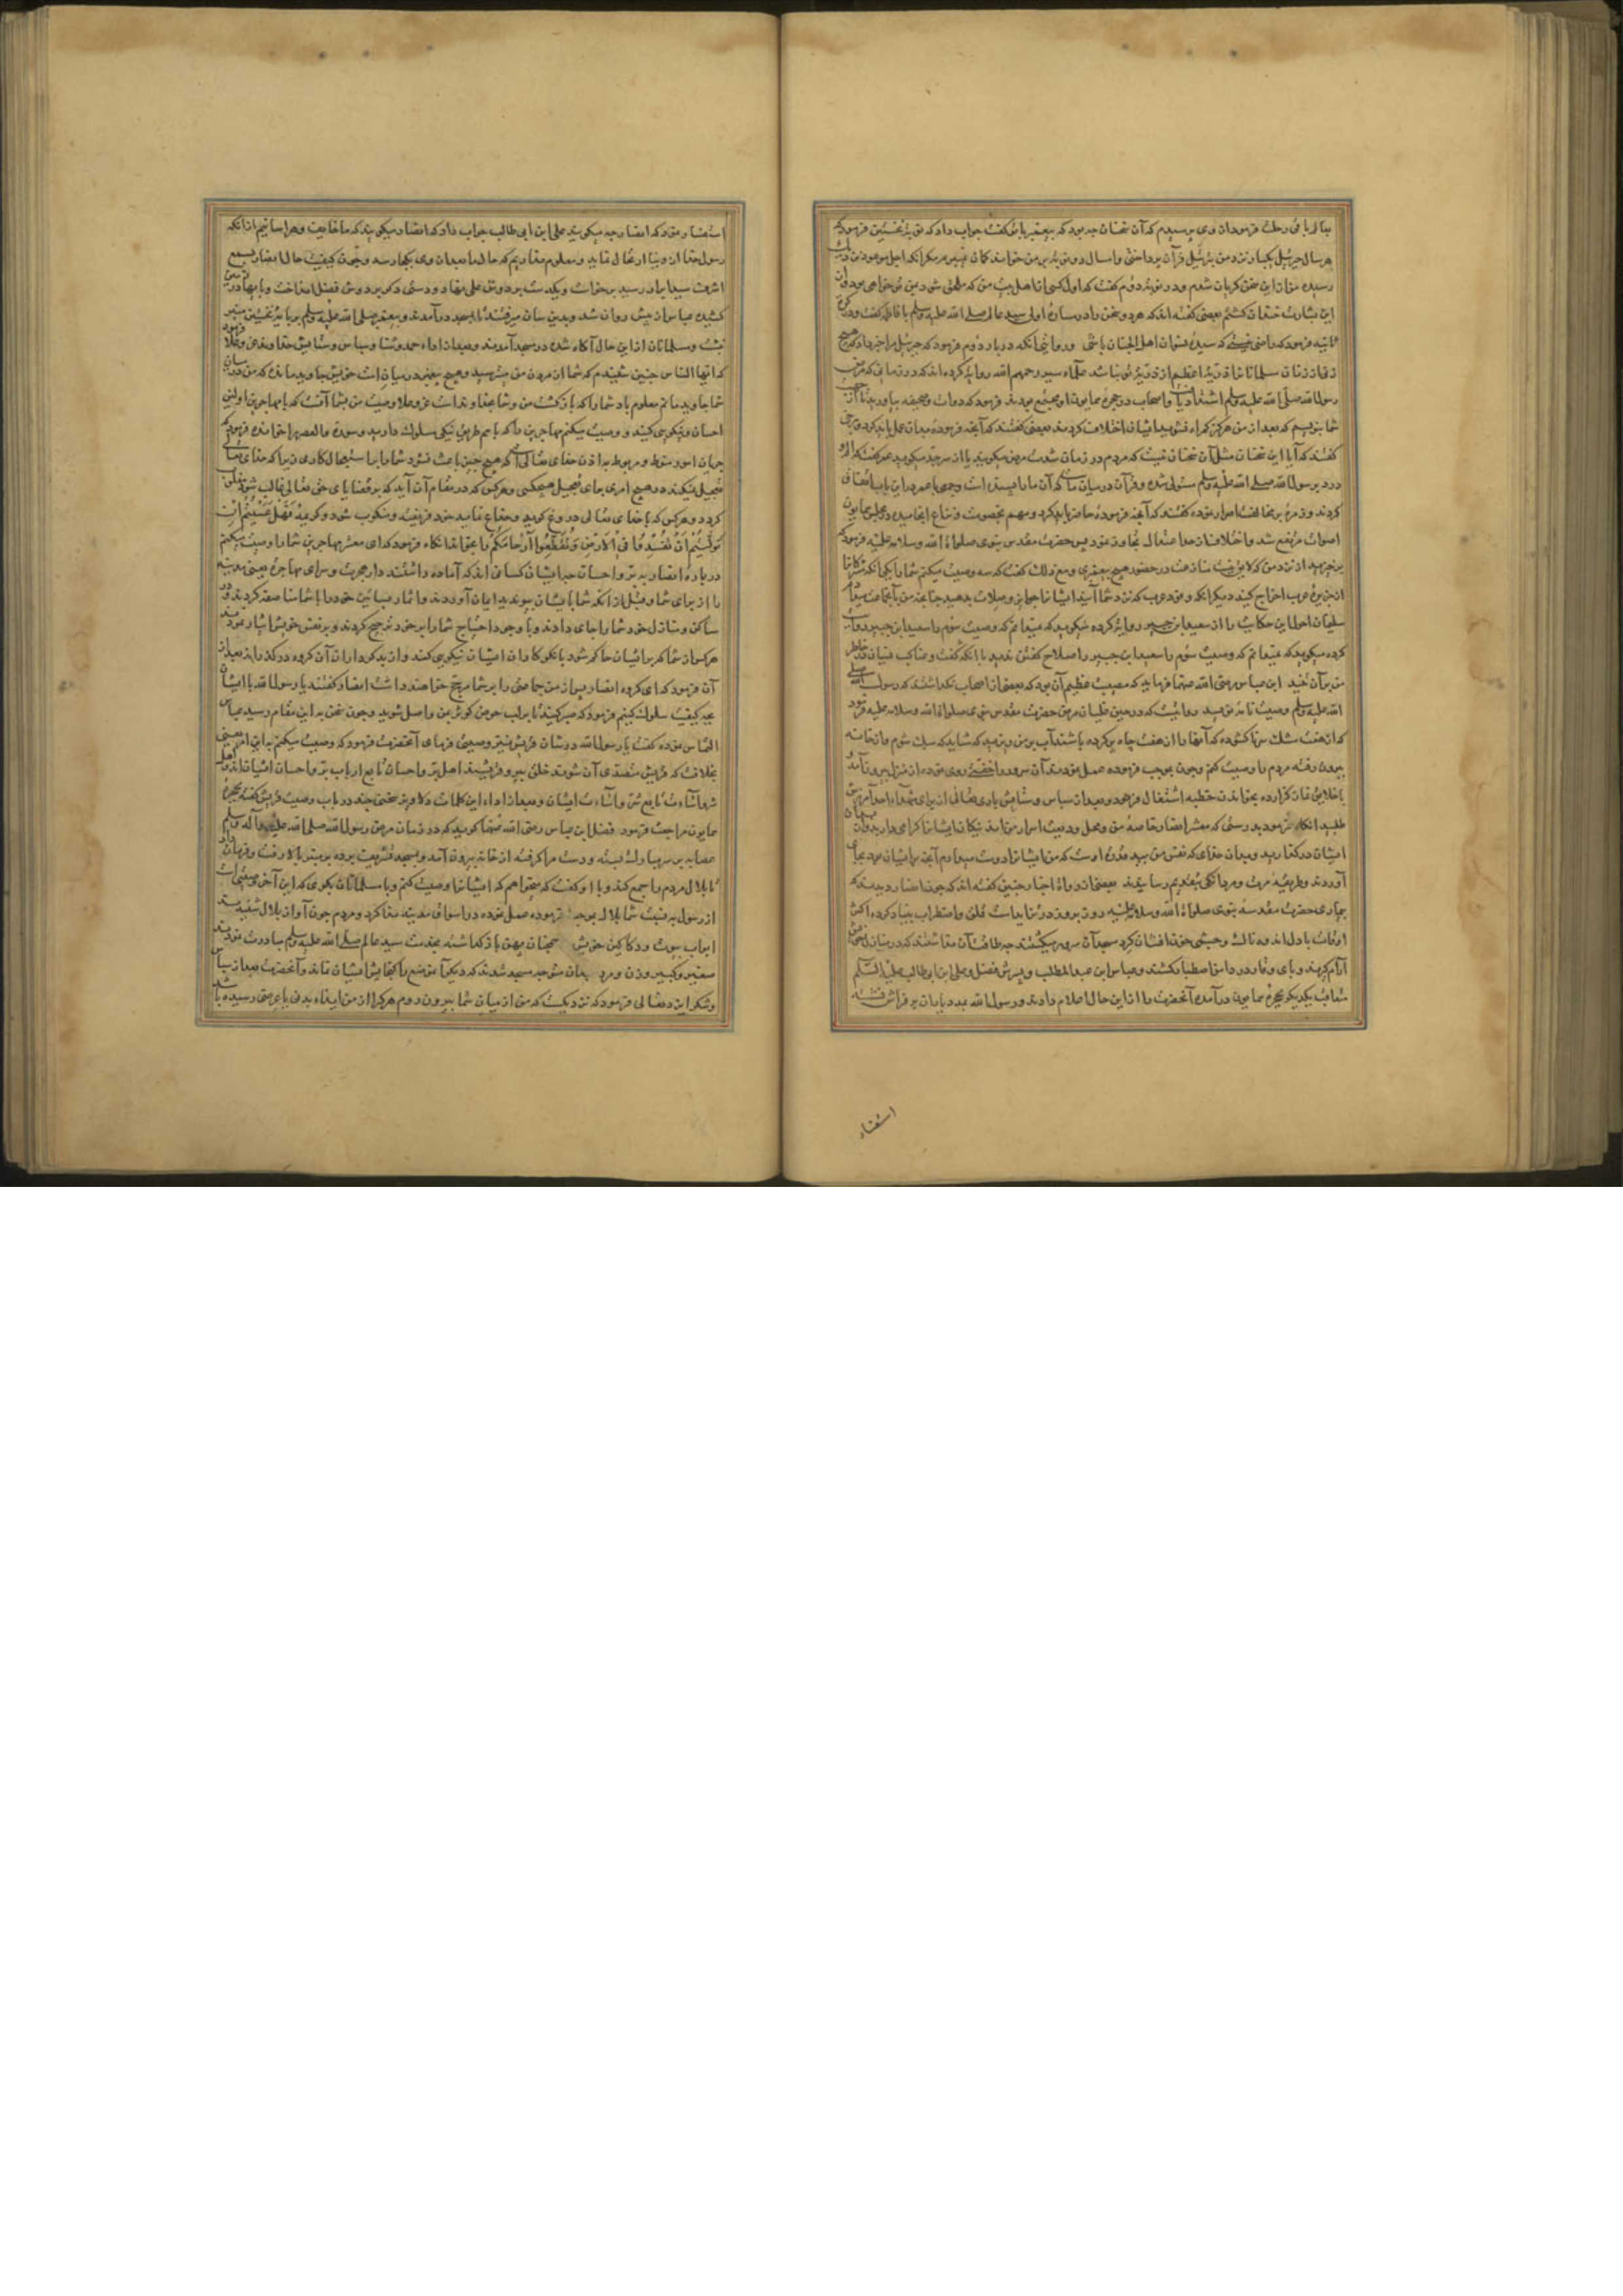 هر سال جبرئیل یکبار نزد من بتنزیل قرآن پرداختی و امسال دو نوبت بر من خواند کمان نمیبرم مگر آنکه اجل موعود من نزدیک
رسیده من از این سخن گریان شدم و در نوبت دوم گفت که اول کسی از اهل بیت من که ملحق شود بمن تو خواهی بود و از
این بشارت خندان گشتم بعضی گفته اند که هر دو سخن را در ساره اولی سید عالم صلی الله علیه وسلم با فاطمه گفت و در
ثانیه فرمود که راضی نیستی که سیده نسوان اهل الجنان باشی و روایتی آنکه در بار دوم فرمود که جبرئیل مرا خبر داد که هیچ
زن از زنان مسلمانان ذریة اعظم از ذریة تو نباشد علماء سیر رحمهم الله روایت کرده اند که در زمانی که مرض
رسول الله صلی الله علیه وسلم اشتداد یافت و اصحاب در حجره همایون او مجتمع بودند فرمود که دوات و صحیفه بیاورید تا از
شما بنویسم که بعد از من هرگز گمراه نشوید ایشان اختلاف کردند بعضی گفتند که آنچه فرموده بدان عمل باید کرد و برخی
گفتند که آیا این سخنان مثل آن سخنان نیست که مردم در زمان شدت مرض میگویند یا از سر جد میگوید عمر گفت که الم و
درد بر رسول الله صلی الله علیه وسلم مستولی شده و قرآن در میان ما که آن ما را بسنده است و جمعی با عمر در این باب اتفاق
کردند و زمره بر مخالفت اصرار نموده گفتند که آنچه فرموده حاضر باید کرد و مهم بخصومت و نزاع انجامیده در مجلس همایون
اصوات مرتفع شد و اختلاف از حد اعتدال تجاوز نمود پس حضرت مقدس نبوی صلواة الله وسلامه علیه فرمود که
برخیزید از نزد من که لایق نیست منازعت در حضور هیچ پیغمبری و مع ذلک گفت که سه وصیت میکنم شما را یکی آنکه مشرکانرا
از جزیره عرب اخراج کنید دیگر آنکه وفود عرب که نزد شما آیند ایشانرا جوایز و صلات بدهید چنانچه من با آن جماعت میدادم
سلیمان احول این حکایت را از سعید ابن جبیر روایت کرده میگوید که نمیدانم که وصیت سوم را سعید ابن جبیر روایت
کرده میگوید که نمیدانم که وصیت سوم را سعید ابن جبیر را صلاح گفتن ندید یا آنکه گفت و عناکب نسیان در خاطر
من بر آن تنید ابن عباس رضی الله عنهما فرماید که مصیبت عظیم آن بود که بعضی از اصحاب نگذاشتند که رسول صلی
الله علیه وسلم وصیت نامه نویسد روایتست که در حین غلیان مرض حضرت مقدس نبوی صلواة الله وسلامه علیه فرمود
که از هفت مشک سر ناگشوده که آنها را از هفت چاه پر کرده باشند آب بر من ریزید که شاید که سبک شوم و از خانه
بیرون رفته مردم را وصیت کنم و چون بموجب فرموده عمل نمودند آن سرور را خفتی روی نموده از منزل بیرون آمد و
با خلایق نماز گزارده بخواندن خطبه اشتغال فرمود و بعد از سپاس و ستایش باری تعالی از برای شهداء احد آمرزش
طلبید آنگاه فرمود بدرستی که معشر انصار خاصه من و محل ودیعت اسرار من اند نیکان ایشانرا گرامی دارید و از بدان
ایشان درگذرانید و بدان خدای که نفس من بید قدرت اوست که من ایشانرا دوست میدارم آنچه بر ایشان بود بجای
آوردند و طریقه مروت و مردانگی بتقدیم رسانیدند بعضی از رواة اخبار چنین گفته اند که چون انصار دیدند که
بیماری حضرت مقدسه نبوی صلواة الله وسلامه علیه روز بروز در تزایداست قلق و اضطراب بنیاد کرده اکثر
اوقات با دل اندوه ناک و چشم خون افشان گرد مسجد آن سرور میگشتند چه طاقت آن نداشتند که در منازل خویش
آرام گیرند و پای وقار در دامن اصطبار کشند و عباس ابن عبد المطلب و پسرش فضل و علی ابن ابو طالب علیه السلم
متعاقب یکدیگر بحجره همایون درآمده آنحضرت را از این حال اعلام دادند و رسول الله بعد دیانات بر فراش نشسته
استفسار
استفسار نمود که انصار چه میگویند علی ابن ابی طالب جواب داد که انصار میگویند که ما خایفیم و هراسانیم از آنکه
رسول خدا از دنیا ارتحال نماید و معلوم نداریم که حال ما بعد از وی بکجا رسد و چون کیفیت حال انصار بسمع
اشرف سید ابرار رسید برخاست و یکدست بر دوش علی نهاد و دستی دیگر بر دوش فضل انداخت و پایها در زمین
کشیده عباس از پیش روان شد و بدین سان میرفتند تا بمسجد درآمدند و پیغمبر صلی الله علیه وسلم بر پایه نخستین منبر
نشست و مسلمانان از این حال آگاه شده در مسجد آمدند و بعد از اداء حمد و ثنا و سپاس و ستایش خداوندی جل و علا فرمود
که ایها الناس چنین شنیدم که شما از مردن من میترسید و هیچ پیغمبر در میان امت خویش جاوید مانده که من در میان
شما جاوید مانم معلوم باد شما را که بازگشت من و شما بخداوند است عز و علا وصیت من بشما آنست که با مهاجرین اولین
احسان و نیکویی کنید و وصیت میکنم مهاجرین را که با هم طریق نیکی سلوک دارند و سوره والعصر را خوانده فرمود که
جریان امور منوط و مربوط به اذن خدای تعالی است که هیچ چیز باعث نشود شما را بر استعجال کاری زیرا که خدای تعالی
تعجیل نمیکند در هیچ امری برای تعجیل هیچکسی و هر کس که در مقام آن آید که بر قضایای حق تعالی غالب شود مغلوب
گردد و هر کس که با خدای تعالی دروغ گوید و خداع نماید خود فریفته و منکوب شود و کریمه فَهَلْ عَسَيْتُمْ اِنْ
تَوَلَّيْتُمْ اَنْ تُفْسِدُوا فِي الْاَرْضِ وَتُقَطِّعُوا اَرْحَامَكُمْ را بخواند آنگاه فرمود که ای معشر مهاجرین شما را وصیت میکنم
در باره انصار به بر و احسان چه ایشان کسانی اند که آماده داشتند دار هجرت و سرای مهاجرة یعنی مدینه
را از برای شما و قبل از آنکه شما بایشان پیوندید ایمان آوردند و اثمار بساتین خود را با شما مناصفه کردند و در
مساکن و منازل خود شما را جای دادند و با وجود احتیاج شما را بر خود ترجیح کردند و بر نفس خویش ایثار نمودند
هر کس از شما که بر ایشان حاکم شود با نکوکاران ایشان نیکویی کنند و از بدکرداران آن گروه درگذرانند بعد از
آن فرمود که ای گروه انصار پس از من جماعتی را بر شما مرجح خواهند داشت انصار گفتند یا رسول الله با ایشان
بچه کیفیت سلوک کنیم فرمود که صبر کنید تا بر لب حوض کوثر بمن واصل شوید و چون سخن به این مقام رسید عباس
التماس نموده گفت یا رسول الله در شان قریش نیز وصیتی فرمای آنحضرت فرمود که وصیت میکنم به این امر یعنی
بخلافت که قریش متصدی آن شوند خلق پیرو قریشند اهل بر و احسان تابع ارباب بر و احسان ایشان اند و اهل
همایون مراجعت فرمود فضل ابن عباس رضی الله عنهما گوید که در زمان مرض رسول الله صلی الله علیه وآله وسلم
عصابه بر سر مبارک بسته و دست مرا گرفته از خانه بیرون آمد و بمسجد تشریف برده بر منبر بالا رفت و فرمان داد
تا بلال مردم را جمع کند و با او گفت که میخواهم که ایشانرا وصیت کنم و با مسلمانان بگوی که این آخر وصیتی است
از رسول به نسبت شما بلال بموجب فرموده عمل نموده در اسواق مدینه ندا کرد و مردم چون آواز بلال شنیدند
ابواب بیوت و دکاکین خویش همچنان بازگذاشته بخدمت سید عالم صلی الله علیه وسلم مبادرت نمودند
صغیر و کبیر و زن و مرد بدان متوجه مسجد شدند که دیگر آن موضع را گنجایش ایشان نماند و آنحضرت بعد از سپاس
و شکر ایزد تعالی فرمود که نزدیکست که من از میان شما بیرون روم هر کرا از من ایذاء بدنی یا عرضی رسیده باشد